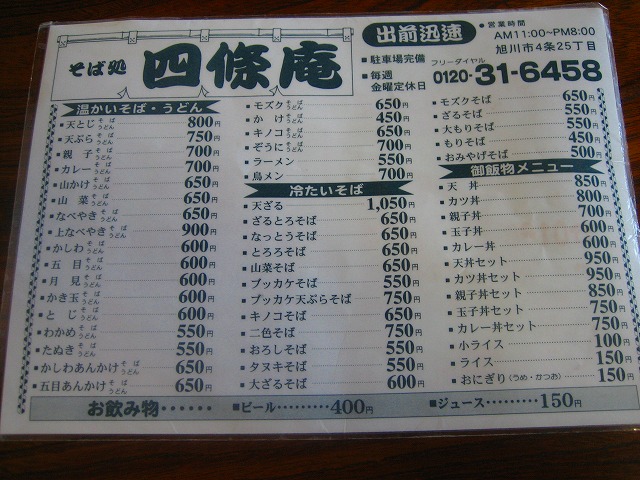 そば処 四條庵
出前迅速
■駐車場完備
■毎週金曜定休日
●営業時間
AM11:00~PM8:00
旭川市4条25丁目
フリーダイヤル
0120-31-6458
温かいそば・うどん
■天とじそばうどん 800円
■天ぷらそばうどん 750円
■親子そばうどん 700円
■カレーそばうどん 700円
■山かけそばうどん 650円
■山菜そばうどん 650円
■なべやきそばうどん 650円
■上なべやきそばうどん 900円
■かしわそばうどん 600円
■五目そばうどん 600円
■月見そばうどん 600円
■かき玉そばうどん 600円
■とじそばうどん 600円
■わかめそばうどん 550円
■たぬきそばうどん 550円
■かしわあんかけそばうどん 650円
■五目あんかけそばうどん 650円
■モズクそばうどん 650円
■かけそばうどん 450円
■キノコそばうどん 650円
■ぞうにそばうどん 700円
■ラーメン 550円
■鳥メン 700円
冷たいそば
■天ざる 1,050円
■ざるとろそば 650円
■なっとうそば 650円
■とろろそば 650円
■山菜そば 650円
■ブッカケそば 550円
■ブッカケ天ぷらそば 750円
■キノコそば 650円
■二色そば 750円
■おろしそば 550円
■タヌキそば 550円
■大ざるそば 600円
■モズクそば 650円
■ざるそば 550円
■大もりそば 550円
■もりそば 450円
■おみやげそば 500円
御飯物メニュー
■天丼 850円
■カツ丼 800円
■親子丼 700円
■玉子丼 600円
■カレー丼 600円
■天丼セット 950円
■カツ丼セット 950円
■親子丼セット 850円
■玉子丼セット 750円
■カレー丼セット 750円
■小ライス 100円
■ライス 150円
■おにぎり(うめ・かつお) 150円
お飲み物……
■ビール………400円
■ジュース………150円